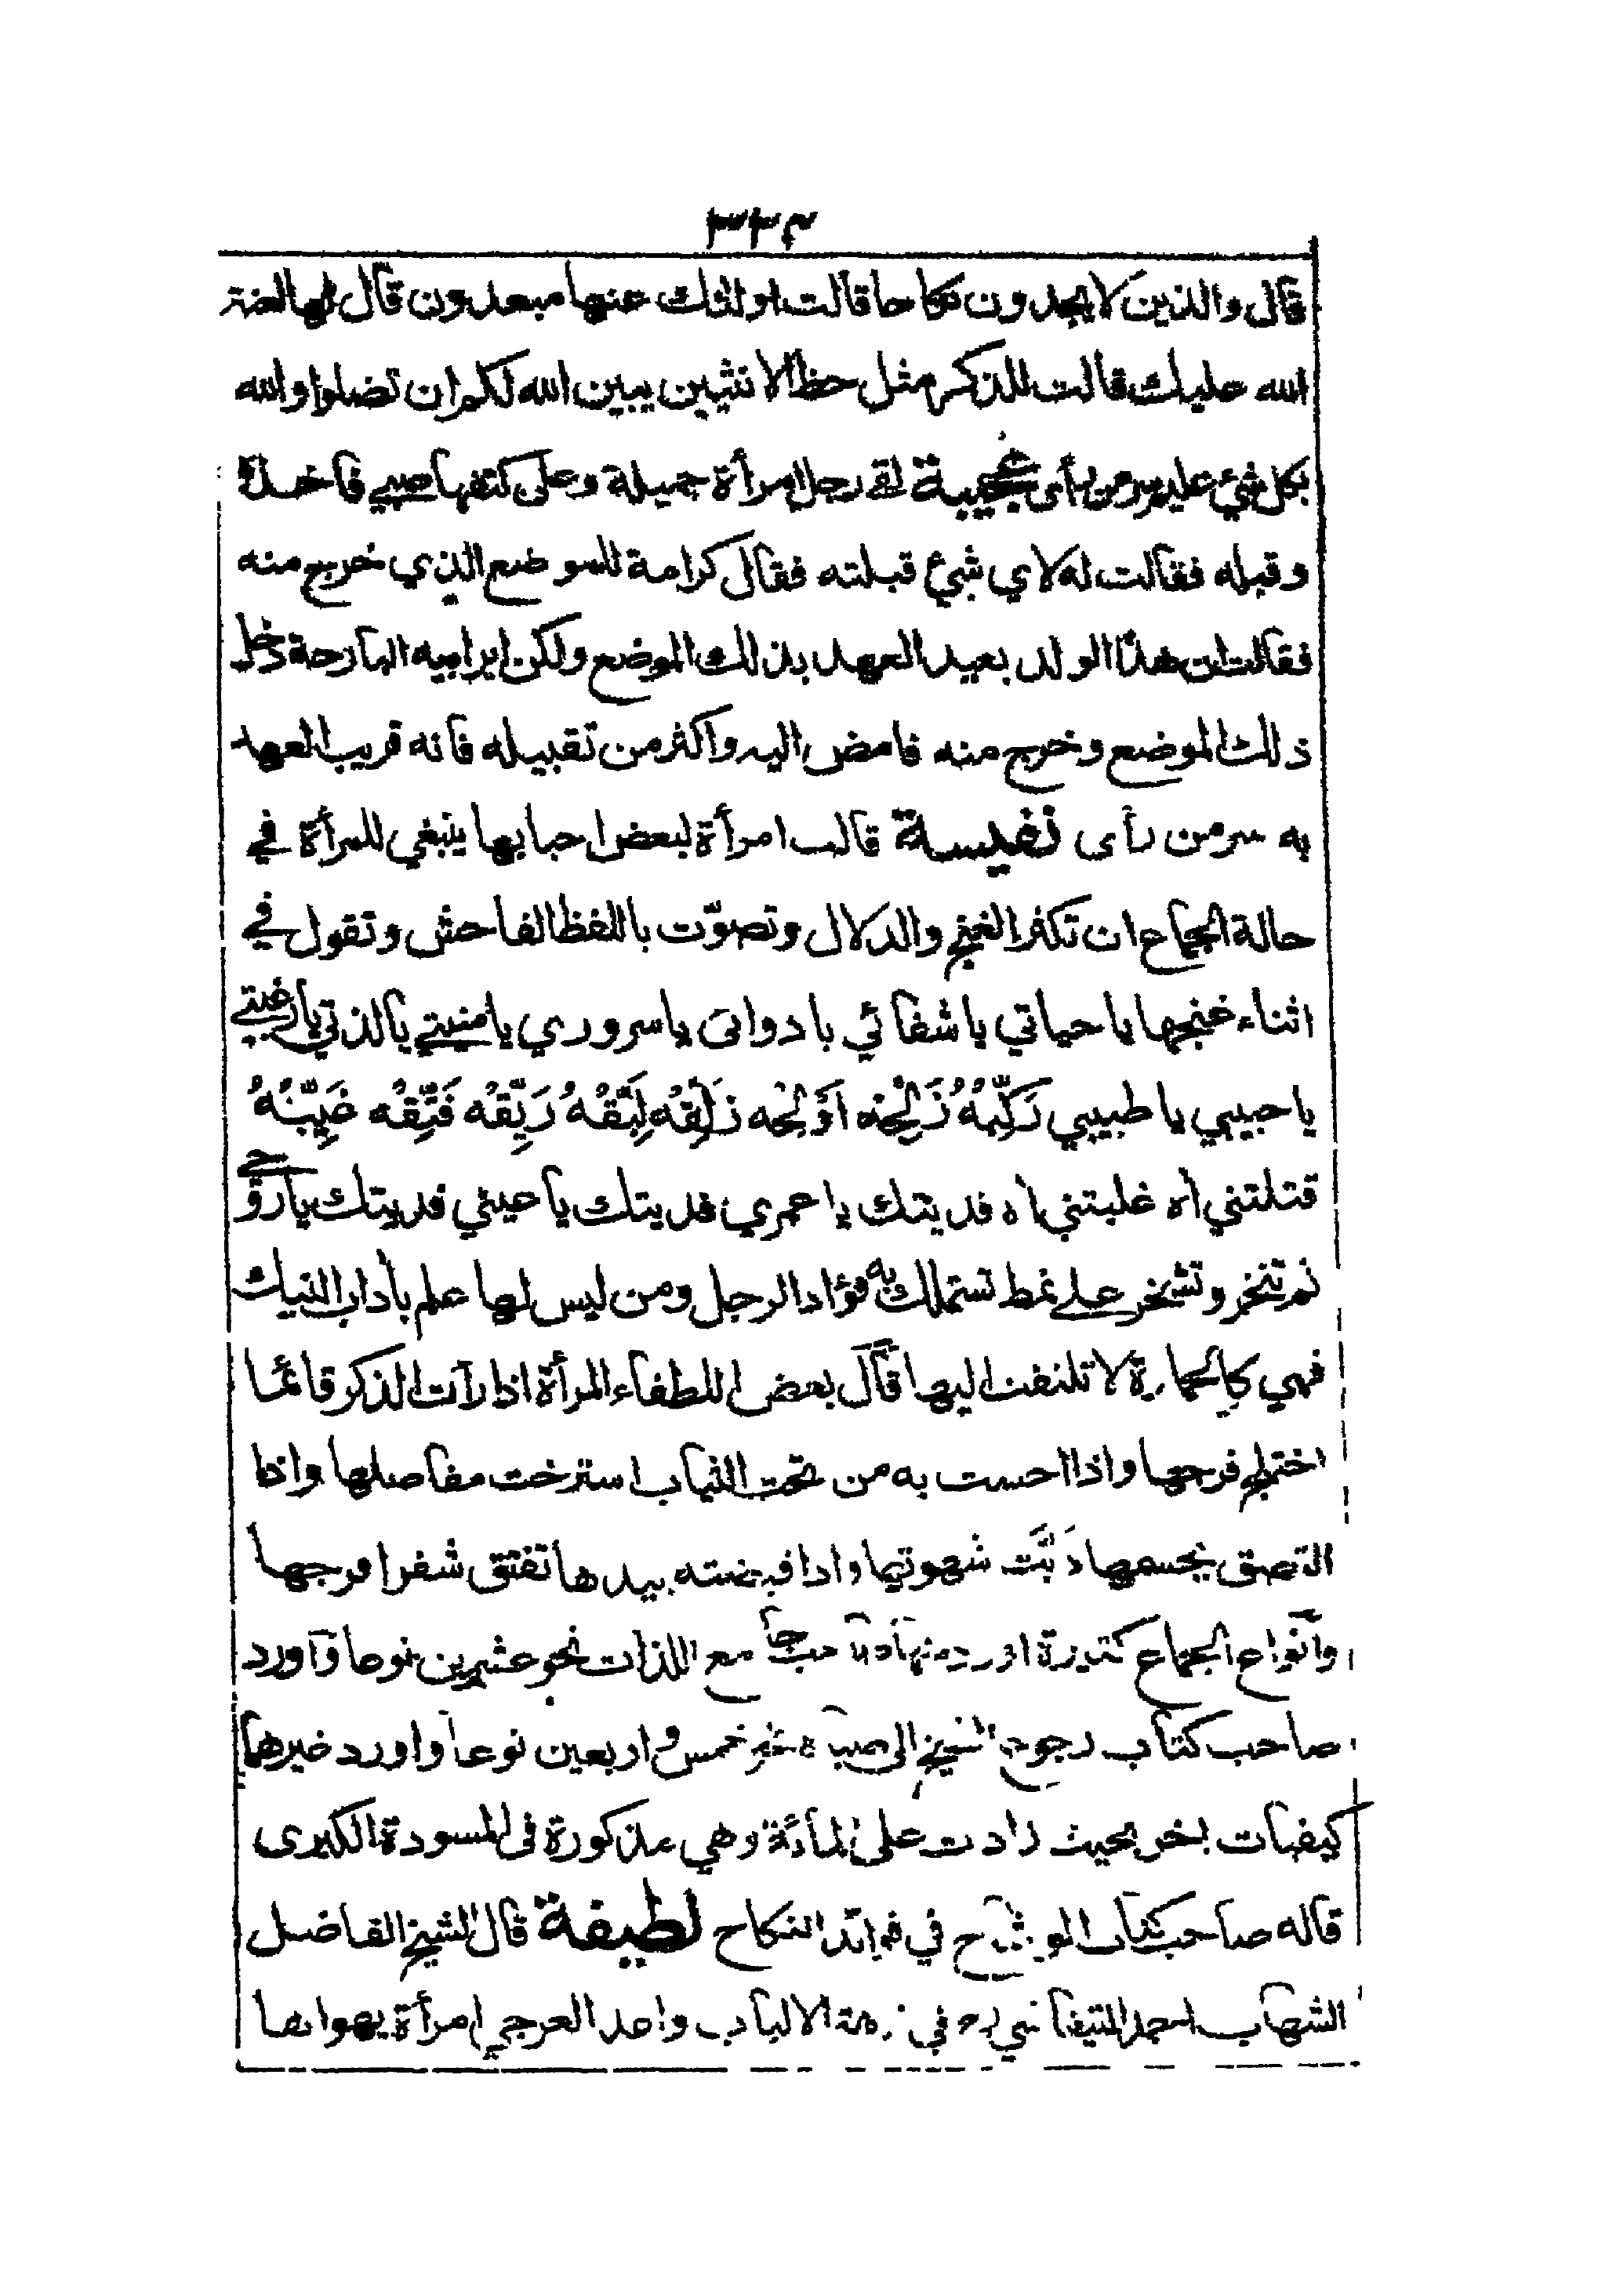 ٣٣٣
قال والذين لا يجدون نكاحا قالت اولئك عنها مبعدون قال لها لعنة
الله عليك قالت للذكر مثل حظ الانثيين يبين الله لكم ان تضلوا والله
بكل شيء عليم سرمن رأى عجيبة لقي رجل امرأة جميلة وعلى كتفها صبي فاخذه
وقبله فقالت له لاي شيء قبلته فقال كرامة للموضع الذي خرج منه
فقالت ان هذا الولد بعيد العهد بذلك الموضع ولكن اير ابيه البارحة دخل
ذلك الموضع وخرج منه فامض اليه واكثر من تقبيله فانه قريب العهد
به سرمن رأى نفيسة قالت امرأة لبعض احبابها ينبغي للمرأة في
حالة الجماع ان تكثر الغنج والدلال وتصوّت باللفظ الفاحش وتقول في
اثناء غنجها يا حياتي يا شفائي يا دوائي يا سروري يا منيتي يا لذتي يا رغبتي
يا حبيبي يا طبيبي رَكِّبْهُ زَلِّجْهُ اَوْلِجْه زَلِّقْهُ لَبِّقْهُ رَيِّقْه فَتِّقْه ضَيِّبْهُ
قتلتني اه غلبتني اه فديتك يا عمري فديتك يا عيني فديتك يا روحي
ثم تنخر وتشخر على نمط تستملك به فؤاد الرجل ومن ليس لها علم بأداب النيك
فهي كالحمارة لا تلتفت اليها قال بعض اللطفاء المرأة اذا رأت الذكر قائما
اختلج فرجها واذا احست به من تحت الثياب استرخت مفاصلها واذا
التصق بجسمها دَبَّت شهوتها واذا قبضته بيدها تفتق شفرا فرجها
وانواع الجماع كثيرة اورد منها صاحب جامع اللذات نحو عشرين نوعا واورد
صاحب كتاب رجوع الشيخ الى صباه نحو خمس واربعين نوعا واورد غيرهما
كيفيات اخر بحيث زادت على المأئة وهي مذكورة في المسودة الكبرى
قاله صاحب كتاب الموشح في فوائد النكاح لطيفة قال الشيخ الفاضل
الشهاب احمد التيفاشي ره في نزهة الالباب واعد العرجي امرأة يهواها